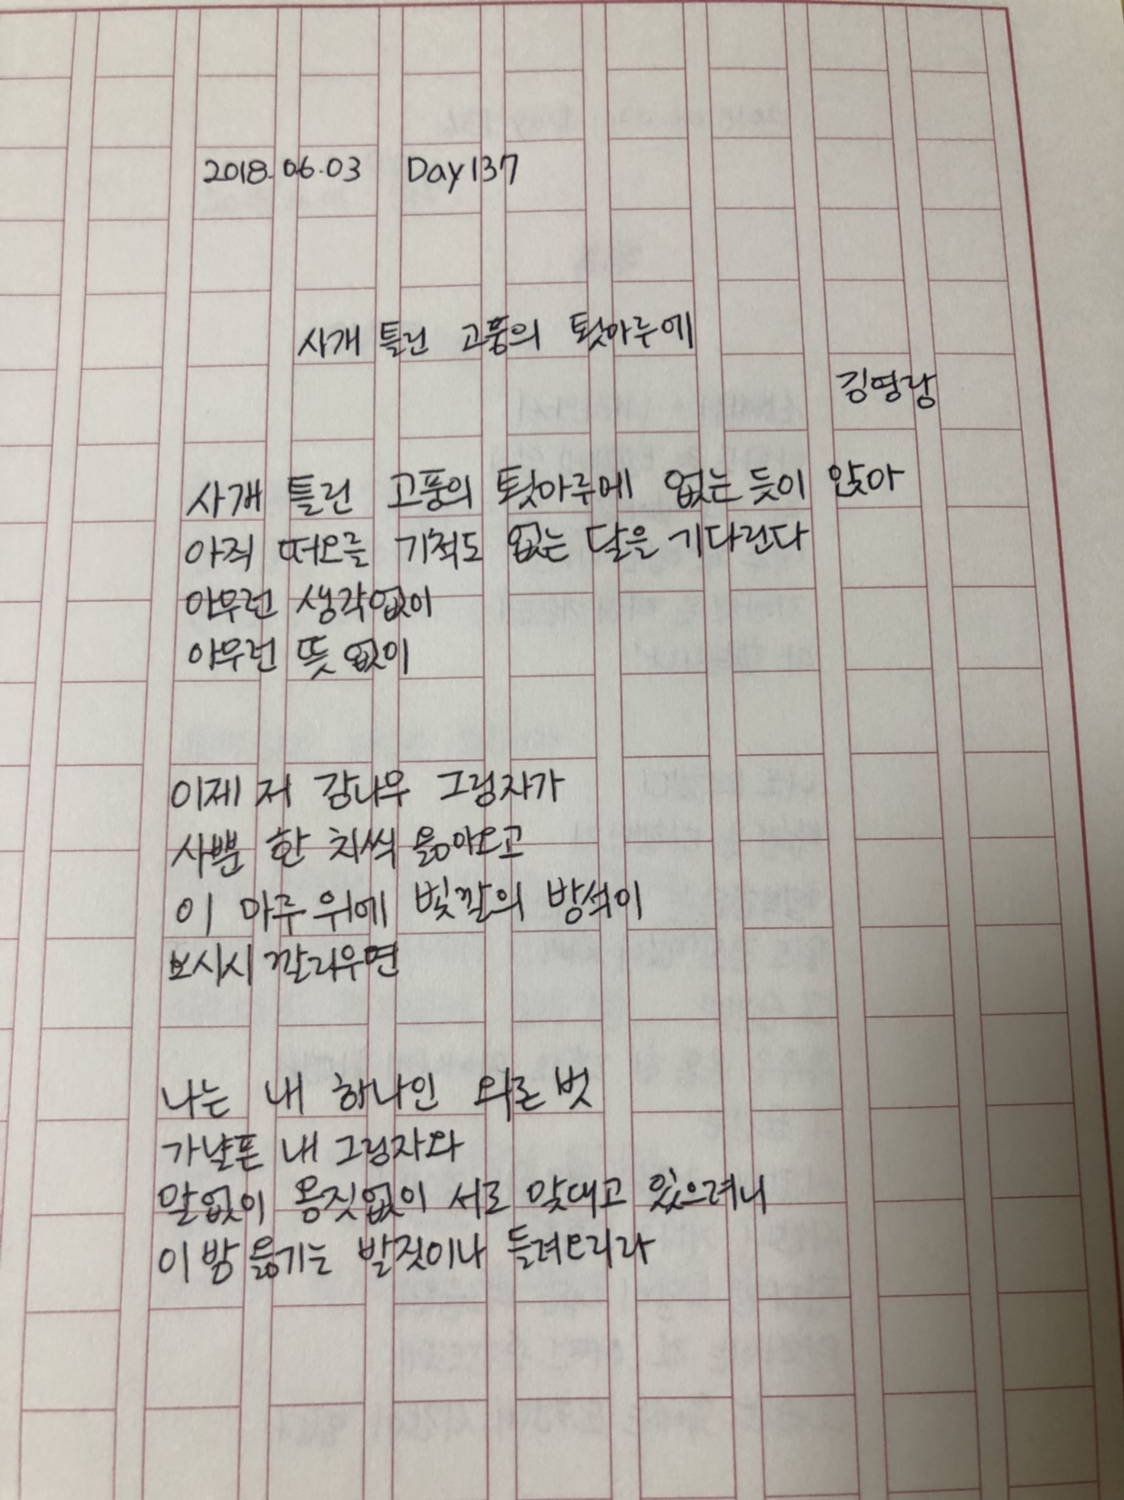 2018.06.03 Day137
사개 틀린 고풍의 툇마루에
김영랑
사개 틀린 고풍의 툇마루에 없는 듯이 앉아
아직 떠오를 기척도 없는 달을 기다린다
아무런 생각없이
아무런 뜻 없이
이제 저 감나무 그림자가
사뿐 한 치씩 옮아오고
이 마루 위에 빛깔의 방석이
보시시 깔리우면
나는 내 하나인 외론 벗
가냘픈 내 그림자와
말없이 몸짓없이 서로 맞대고 있으려니
이 밤 옮기는 발짓이나 들려오리라